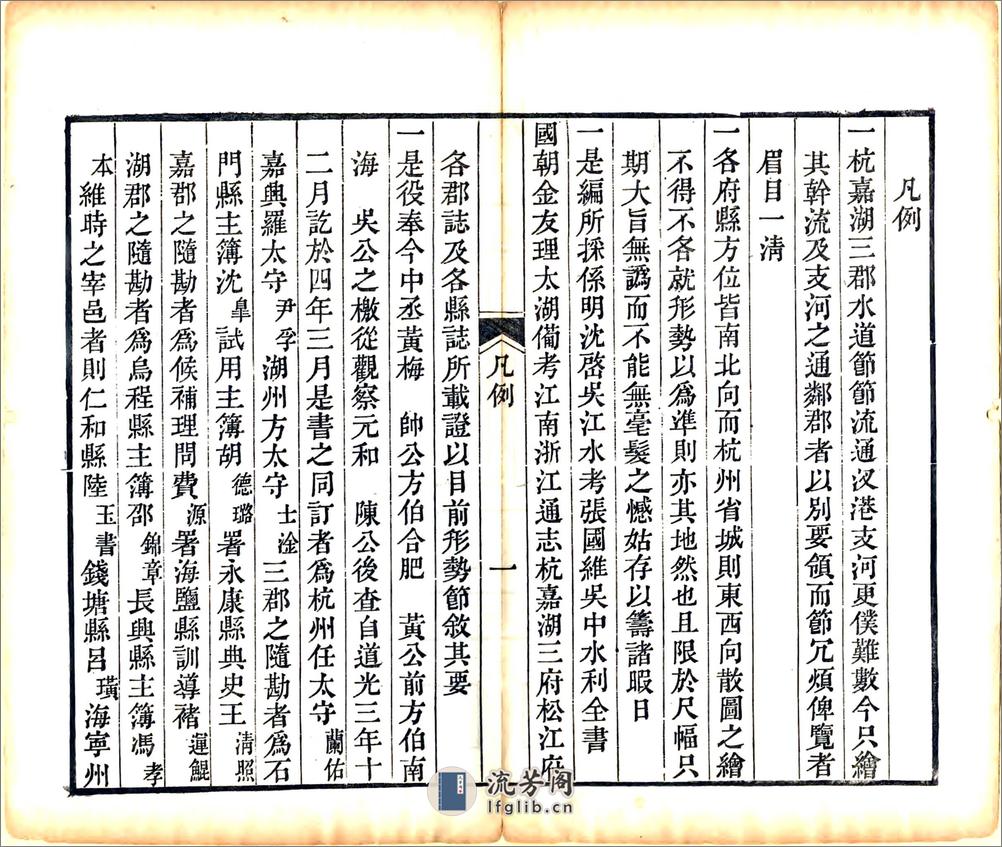 凡例
一杭嘉湖三郡水道節節流通汊港支河更僕難數今只繪
其幹流及支河之通鄰郡者以別要領而節冗煩俾覽者
眉目一清
一各府縣方位皆南北向而杭州省城則東西向散圖之繪
不得不各就形勢以爲準則亦其地然也且限於尺幅只
期大旨無譌而不能無毫髮之憾姑存以籌諸暇日
一是編所採係明沈啓吳江水考張國維吳中水利全書
國朝金友理太湖備考江南浙江通志杭嘉湖三府松江府
凡例
一
各郡誌及各縣誌所載證以目前形勢節敘其要
一是役奉今中丞黃梅 帥公方伯合肥 黃公前方伯南
海 吳公之檄從觀察元和 陳公後查自道光三年十
二月訖於四年三月是書之同訂者爲杭州任太守蘭佑
嘉興羅太守尹孚湖州方太守士淦三郡之隨勘者爲石
門縣主簿沈臯試用主簿胡德璐署永康縣典史王清照
嘉郡之隨勘者爲候補理問費源署海鹽縣訓導褚運鯤
湖郡之隨勘者爲烏程縣主簿邵錦章長興縣主簿馮孝
本維時之宰邑者則仁和縣陸玉書錢塘縣呂璜海寧州
流芳阁
lfglib.cn